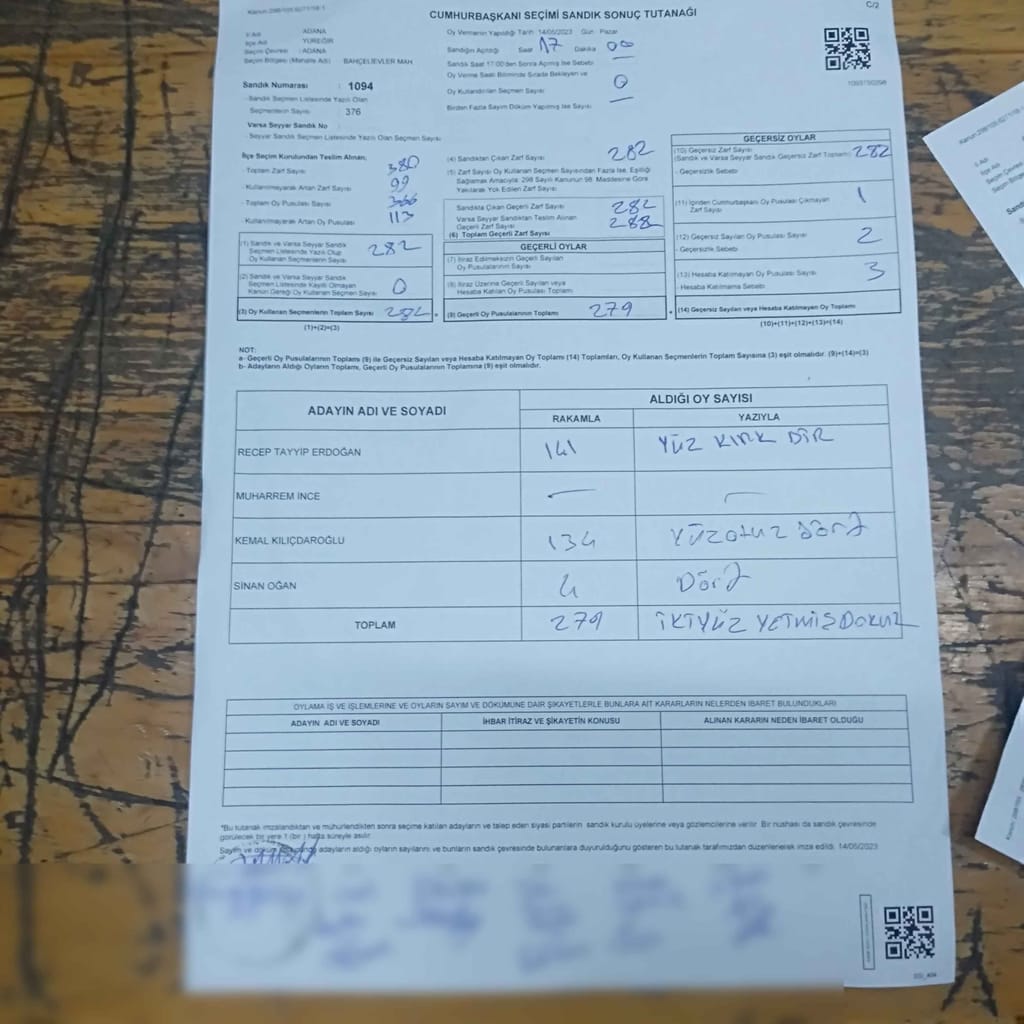 CUMHURBAŞKANI SEÇİMİ SANDIK SONUÇ TUTANAĞI
C/2
İl Adı : ADANA
İlçe Adı : YÜREĞİR
Seçim Çevresi : ADANA
Seçim Bölgesi (Mahalle Adı) BAHÇELİEVLER MAH.
Sandık Numarası : 1094
- Sandık Seçmen Listesinde Yazılı Olan
Seçmenlerin Sayısı : 376
Varsa Seyyar Sandık No
- Seyyar Sandık Seçmen Listesinde Yazılı Olan Seçmen Sayısı
Oy Vermenin Yapıldığı Tarih: 14/05/2023 Gün : Pazar
Sandığın Açıldığı Saat 17 Dakika 00
Sandık Saat 17:00'den Sonra Açılmış İse Sebebi
Oy Verme Saati Bitiminde Sırada Bekleyen ve
Oy Kullandırılan Seçmen Sayısı 0
Birden Fazla Sayım Döküm Yapılmış İse Sayısı
İlçe Seçim Kurulundan Teslim Alınan;
- Toplam Zarf Sayısı 380
- Kullanılmayarak Artan Zarf Sayısı 99
- Toplam Oy Pusulası Sayısı 366
- Kullanılmayarak Artan Oy Pusulası 113
(1) Sandık ve Varsa Seyyar Sandık
Seçmen Listesinde Yazılı Olup
Oy Kullanan Seçmenlerin Sayısı 282
(2) Sandık ve Varsa Seyyar Sandık
Seçmen Listesinde Kayıtlı Olmayan
Kanun Gereği Oy Kullanan Seçmen Sayısı 0
(3) Oy Kullanan Seçmenlerin Toplam Sayısı 282
(1)+(2)=(3)
(4) Sandıktan Çıkan Zarf Sayısı 282
(5) Zarf Sayısı Oy Kullanan Seçmen Sayısından Fazla İse, Eşitliği
Sağlamak Amacıyla; 298 Sayılı Kanunun 98. Maddesine Göre
Yakılarak Yok Edilen Zarf Sayısı
Sandıkta Çıkan Geçerli Zarf Sayısı 282
Varsa Seyyar Sandıktan Teslim Alınan
Geçerli Zarf Sayısı 288
(6) Toplam Geçerli Zarf Sayısı
GEÇERLİ OYLAR
(7) İtiraz Edilmeksizin Geçerli Sayılan
Oy Pusulalarının Sayısı
(8) İtiraz Üzerine Geçerli Sayılan veya
Hesaba Katılan Oy Pusulası Toplamı
(9) Geçerli Oy Pusulalarının Toplamı 279
GEÇERSİZ OYLAR
(10) Geçersiz Zarf Sayısı
(Sandık ve Varsa Seyyar Sandık Geçersiz Zarf Toplamı) 282
- Geçersizlik Sebebi
(11) İçinden Cumhurbaşkanı Oy Pusulası Çıkmayan
Zarf Sayısı 1
(12) Geçersiz Sayılan Oy Pusulası Sayısı 2
- Geçersizlik Sebebi
(13) Hesaba Katılmayan Oy Pusulası Sayısı 3
- Hesaba Katılmama Sebebi
(14) Geçersiz Sayılan veya Hesaba Katılmayan Oy Toplamı
(10)+(11)+(12)+(13)=(14)
NOT:
a- Geçerli Oy Pusulalarının Toplamı (9) ile Geçersiz Sayılan veya Hesaba Katılmayan Oy Toplamı (14) Toplamları, Oy Kullanan Seçmenlerin Toplam Sayısına (3) eşit olmalıdır. (9)+(14)=(3)
b- Adayların Aldığı Oyların Toplamı, Geçerli Oy Pusulalarının Toplamına (9) eşit olmalıdır.
ADAYIN ADI VE SOYADI ALDIĞI OY SAYISI
RAKAMLA YAZIYLA
RECEP TAYYİP ERDOĞAN 141 YÜZ KIRK BİR
MUHARREM İNCE — —
KEMAL KILIÇDAROĞLU 134 YÜZOTUZ DÖRT
SİNAN OĞAN 4 DÖRT
TOPLAM 279 İKİYÜZ YETMİŞDOKUZ
OYLAMA İŞ VE İŞLEMLERİNE VE OYLARIN SAYIM VE DÖKÜMÜNE DAİR ŞİKAYETLERLE BUNLARA AİT KARARLARIN NELERDEN İBARET BULUNDUKLARI
ADAYIN ADI VE SOYADI İHBAR İTİRAZ VE ŞİKAYETİN KONUSU ALINAN KARARIN NEDEN İBARET OLDUĞU
*Bu tutanak imzalandıktan ve mühürlendikten sonra seçime katılan adayların ve talep eden siyasi partilerin sandık kurulu üyelerine veya gözlemcilerine verilir. Bir nüshası da sandık çevresinde
görülecek bir yere 1 (bir) hafta süreyle asılır.
Sayım ve döküm adayların aldığı oyların sayılarını ve bunların sandık çevresinde bulunanlara duyurulduğunu gösteren bu tutanak tarafımızdan düzenlenerek imza edildi. 14/05/2023